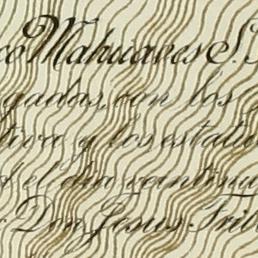 co Mahuaves S.
gadas, con los
tiva y los estatu
el dia veintiun
Don Jesus Trill